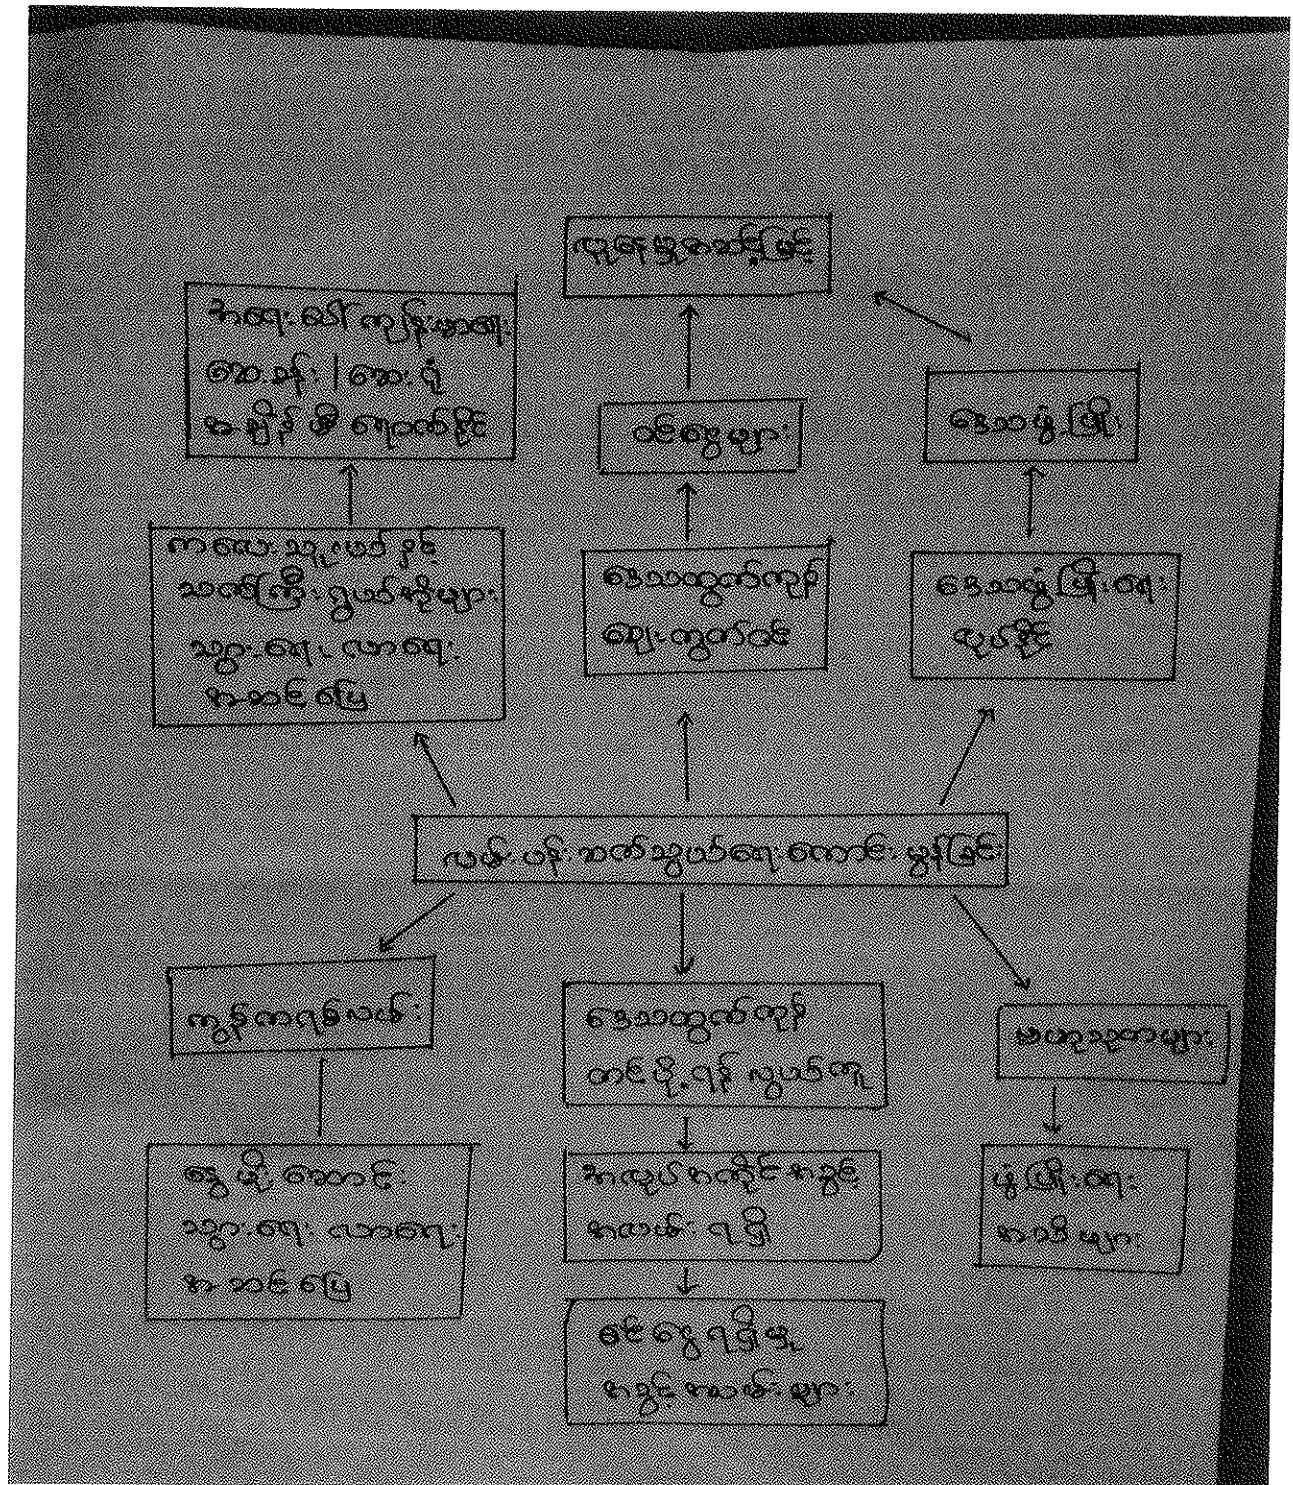 လူနေမှုအဆင့်မြင့်
အရေးပေါ် ကျန်းမာရေး
ဆေးခန်း / ဆေးရုံ
အချိန်မီ ရောက်နိုင်
ဝင်ငွေများ
ဒေသဖွံ့ဖြိုး
ကလေးသူငယ်နှင့်
သက်ကြီးရွယ်အိုများ
သွားရေး လာရေး
အဆင်ပြေ
ဒေသထွက်ကုန်
ဈေးကွက်ဝင်
ဒေသဖွံ့ဖြိုးရေး
လုပ်နိုင်
လမ်းပန်းဆက်သွယ်ရေးကောင်းမွန်ခြင်း
ကွန်ကရစ်လမ်း
ဒေသထွက်ကုန်
တင်ပို့ရန် လွယ်ကူ
ဗဟုသုတများ
နွေ မိုး ဆောင်း
သွားရေး လာရေး
အဆင်ပြေ
အလုပ်အကိုင်အခွင့်
အလမ်း ရရှိ
ဖွံ့ဖြိုးရေး
အသိများ
ဝင်ငွေရရှိမှု
အခွင့်အလမ်းများ